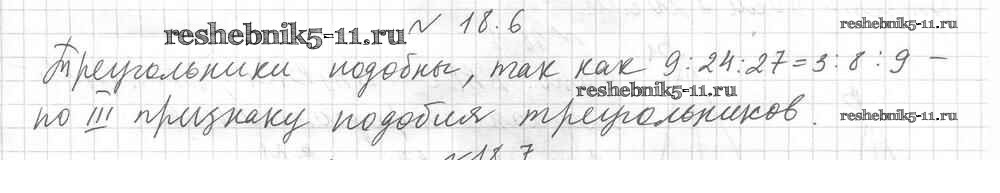 № 18.6
reshebnik5-11.ru
reshebnik5-11.ru
Треугольники подобны, так как 9:24:27=3:8:9 –
reshebnik5-11.ru
по III признаку подобия треугольников.
reshebnik5-11.ru
№18.7